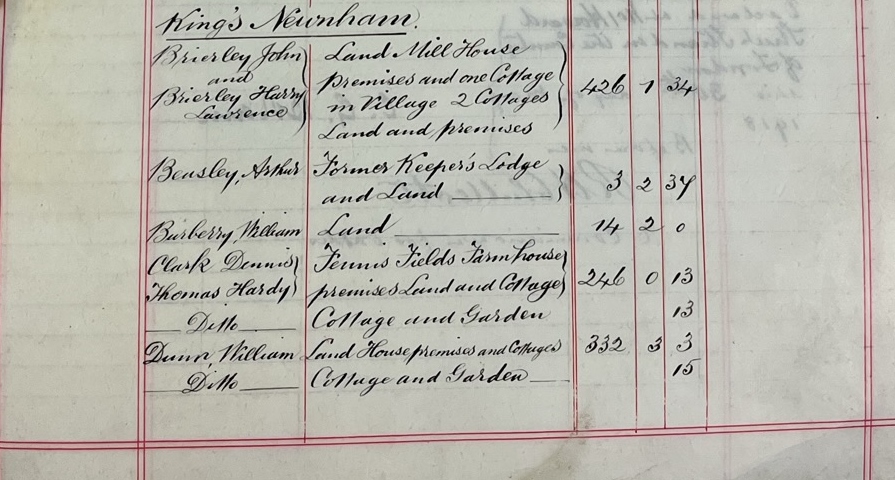 King's Newnham.
Brierley John Land Mill House
and premises and one Cottage
Brierley Harry in Village 2 Cottages 426 1 34
Lawrence Land and premises
Beasley, Arthur Former Keeper's Lodge
and Land 3 2 37
Burberry William Land 14 2 0
Clark Dennis Fennis Fields Farmhouse
Thomas Hardy premises Land and Cottage 246 0 13
Ditto Cottage and Garden 13
Dunn William Land House premises and Cottages 332 3 3
Ditto Cottage and Garden 15